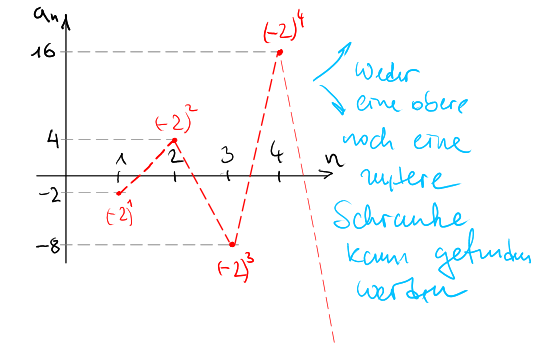 aₙ
16
(-2)⁴
(-2)²
4
1 2 3 4 n
-2
(-2)¹
-8
(-2)³
Weder
eine obere
noch eine
untere
Schranke
kann gefunden
werden